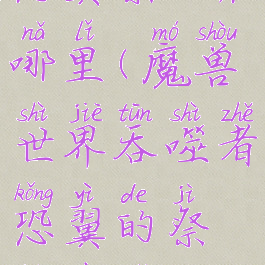 nǎ lǐ mó shòu
哪里(魔兽
shì jiè tūn shì zhě
世界吞噬者
kǒng yì de jì
恐翼的祭